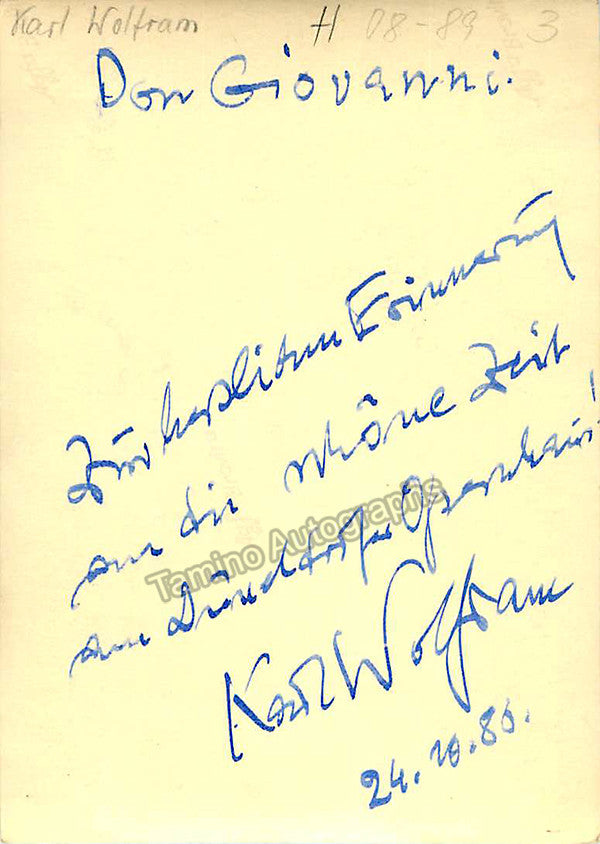 Karl Wolfram H 08-89 3
Don Giovanni.
Zur herzlichen Erinnerung
an die schöne Zeit
am Düsseldorfer Opernhaus!
Tamino Autographs
Karl Wolfram
24.10.86.